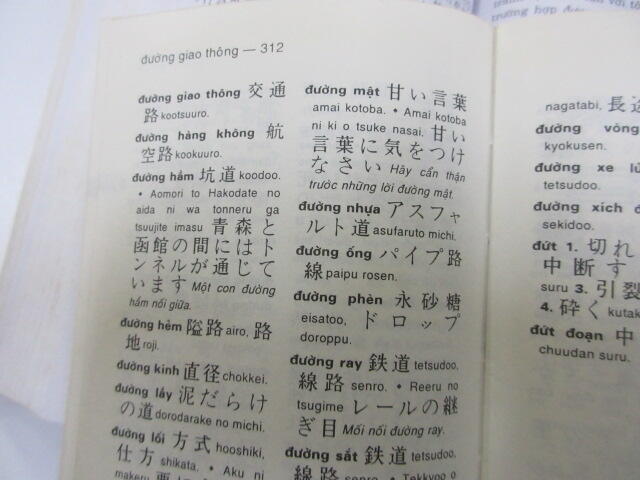 đường giao thông — 312
đường giao thông 交通
路 kootsuuro.
đường hàng không 航
空路 kookuuro.
đường hầm 坑道 koodoo.
• Aomori to Hakodate no
aida ni wa tonneru ga
tsuujite imasu 青森と
函館の間にはト
ンネルが通じて
います Một con đường
hầm nối giữa.
đường hẻm 隘路 airo, 路
地 roji.
đường kính 直径 chokkei.
đường lầy 泥だらけ
の道 dorodarake no michi.
đường lối 方式 hooshiki,
仕方 shikata. • Aku ni
đường mật 甘い言葉
amai kotoba. • Amai kotoba
ni ki o tsuke nasai. 甘い
言葉に気をつけ
なさい Hãy cẩn thận
trước những lời đường mật.
đường nhựa アスファ
ルト道 asufaruto michi.
đường ống パイプ路
線 paipu rosen.
đường phèn 氷砂糖
eisatoo, ドロップ
doroppu.
đường ray 鉄道 tetsudoo,
線路 senro. • Reeru no
tsugime レールの継
ぎ目 Mối nối đường ray.
đường sắt 鉄道 tetsudoo,
線路 senro. • Tekkyo o
nagatabi, 長
đường vòng
kyokusen.
đường xe
tetsudoo.
đường xích
sekidoo.
đứt 1. 切れ
中断す
suru 3. 引裂
4. 砕く
đứt đoạn 中
chuudan suru.